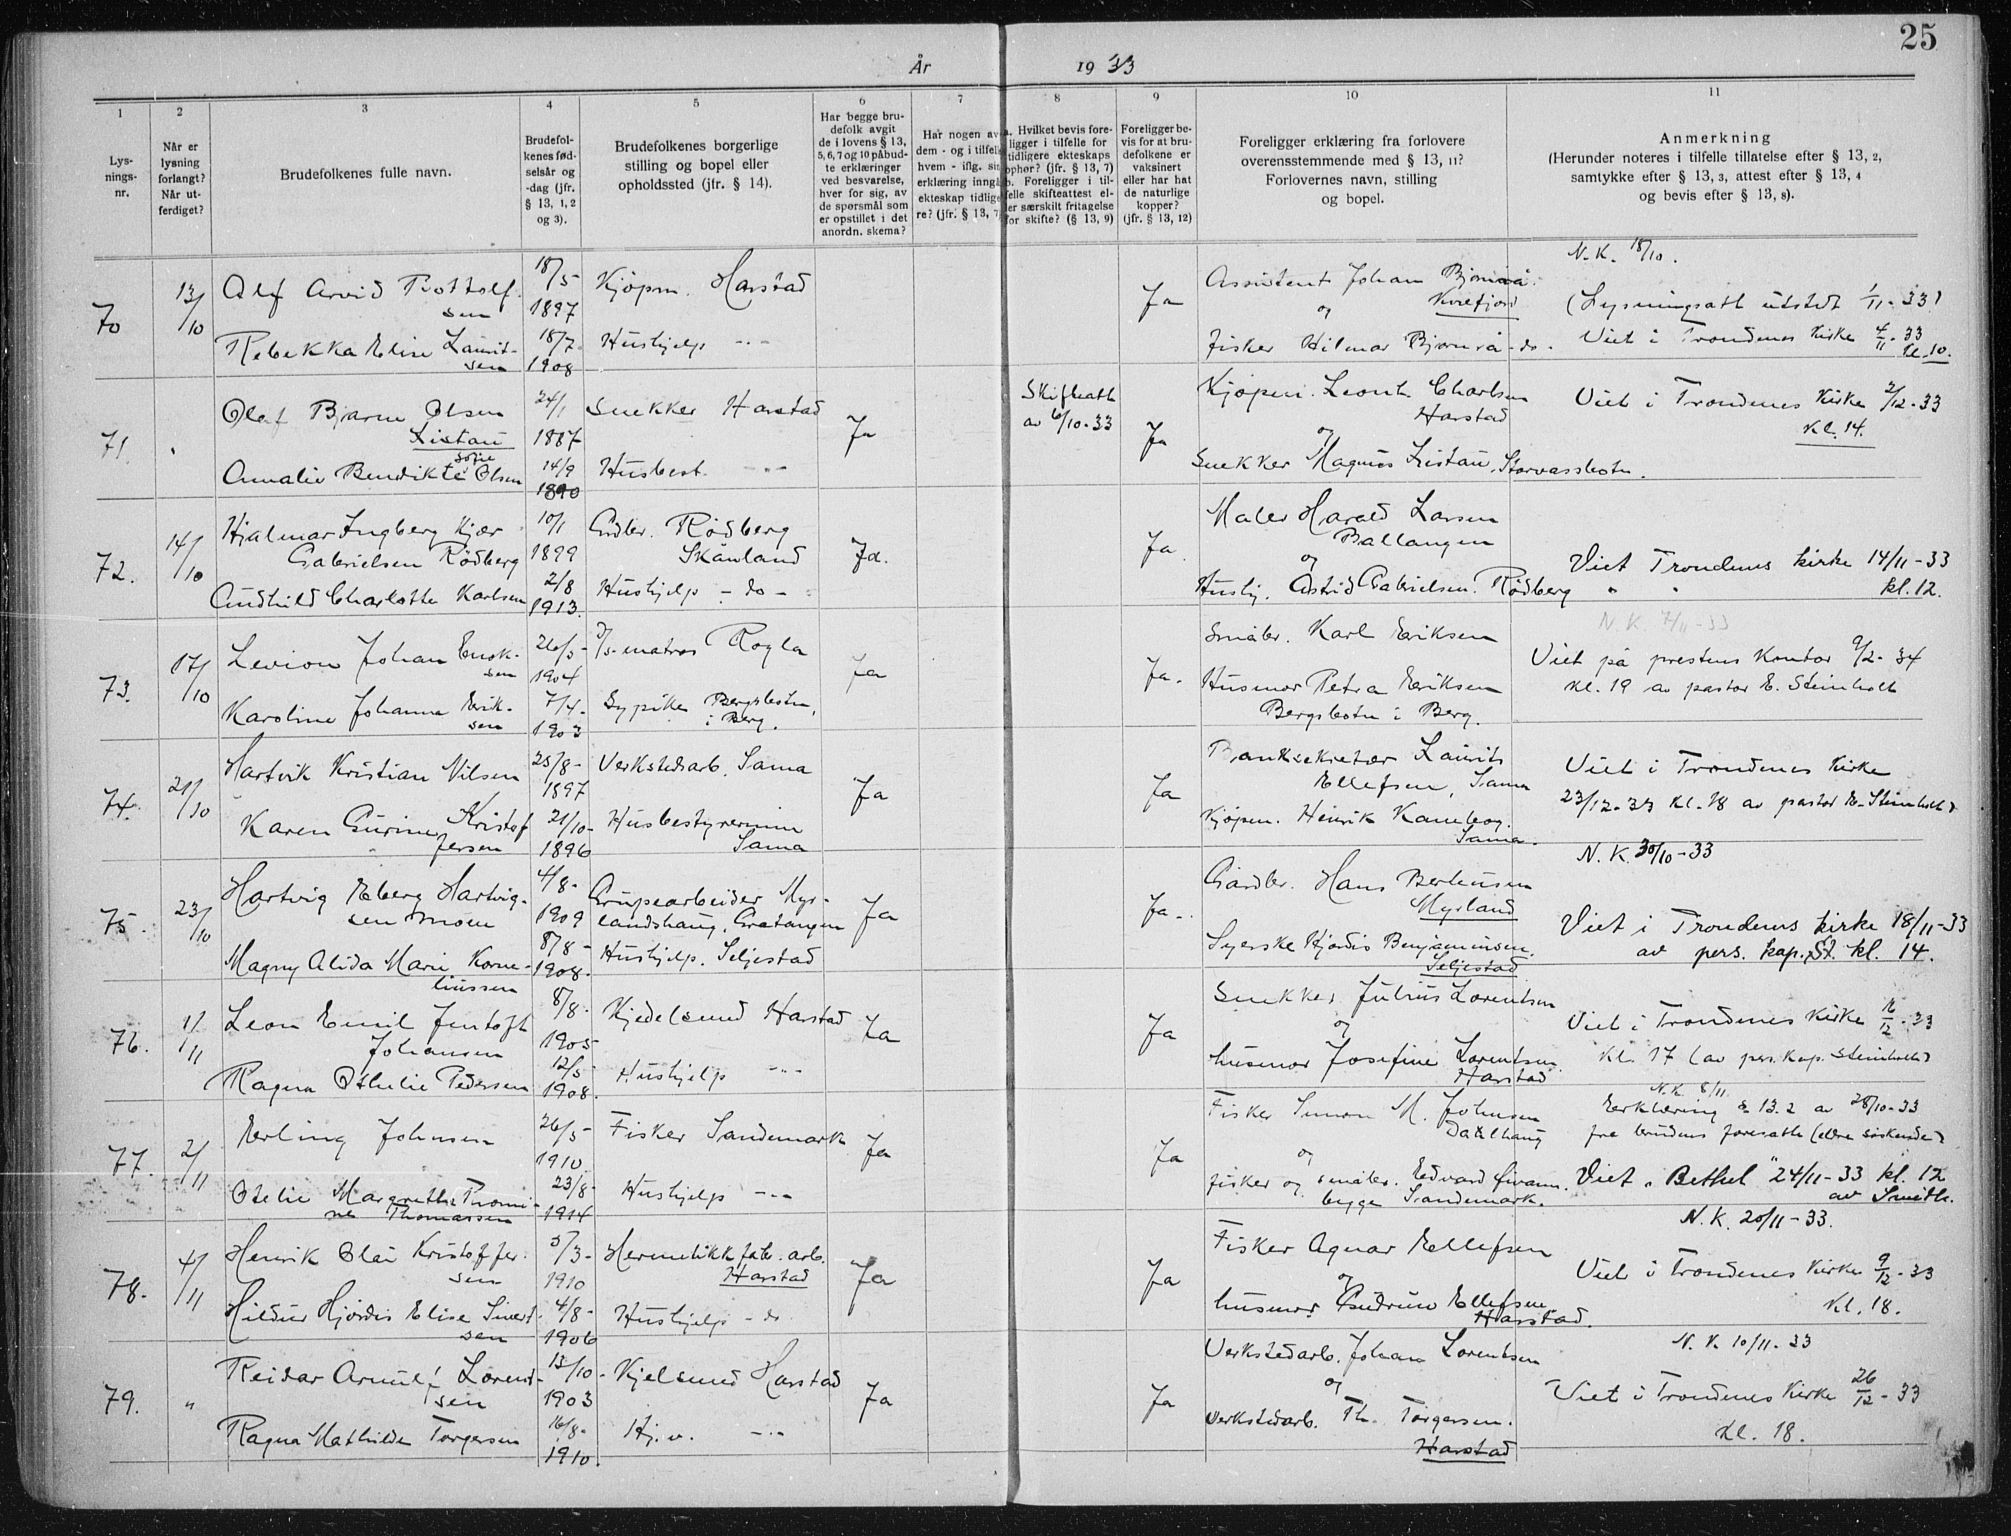 25
År 1933
1
2
3
4
5
6
7
8
9
10
11
Lys-
nings-
nr.
Når er
lysning
forlangt?
Når ut-
ferdiget?
Brudefolkenes fulle navn.
Brudefol-
kenes fød-
selsår og
-dag (jfr.
§ 13, 1, 2
og 3).
Brudefolkenes borgerlige
stilling og bopel eller
opholdssted (jfr. § 14).
Har begge bru-
defolk avgit
de i lovens § 13,
5, 6, 7 og 10 påbud-
te erklæringer
ved besvarelse,
hver for sig, av
de spørsmål som
er opstillet i det
anordn. skema?
Har nogen av
dem - og i tilfelle
hvem - iflg. sin
erklæring inngå
ekteskap tidlige
re? (jfr. § 13, 7
a. Hvilket bevis fore-
ligger i tilfelle for
tidligere ekteskaps
ophør? (jfr. § 13, 7)
b. Foreligger i til-
felle skifteattest el-
ler særskilt fritagelse
for skifte? (§ 13, 9)
Foreligger be-
vis for at bru-
defolkene er
vaksinert
eller har hat
de naturlige
kopper?
(jfr. § 13, 12)
Foreligger erklæring fra forlovere
overensstemmende med § 13, 11?
Forlovernes navn, stilling
og bopel.
Anmerkning
(Herunder noteres i tilfelle tillatelse efter § 13, 2,
samtykke efter § 13, 3, attest efter § 13, 4
og bevis efter § 13, 8).
70
13/10
Alf Arvid Rottolf-
sen
18/5
1897
Kjøpm. Harstad
Rebekka Elise Laurit-
sen
18/7
1908
Hushjelp -"-
Ja
Assistent Johan Bjørnrå
Kvæfjord
og
Fisker Hilmar Bjørnrå - do.
N.K. 18/10.
(Lysningsatt utstedt 1/11-33)
Viet i Trondenes Kirke 4/11-33
Kl. 10.
71.
"
Olaf Bjarne Olsen
Listau
24/1
1887
Snekker Harstad
Amalie Bendikte Sofie Olsen
14/9
1890
Husbest. -"-
Ja
Skifteatt
av 6/10-33
Ja
Kjøpm. Leonh. Charlsen
Harstad
og
Snekker Magnus Listau, Storvassbotn.
Viet i Trondenes Kirke 2/12-33
Kl. 14.
72.
14/10
Hjalmar Ingberg Kjær
Gabrielsen Rødberg
10/1
1899
Grdbr. Rødberg
Skånland
Audhild Charlotte Karlsen
2/8
1913.
Hushjelp - do -
Ja.
Ja.
Maler Harald Larsen
Ballangen
og
Hushj. Astrid Gabrielsen. Rødberg
Viet Trondenes kirke 14/11-33
" " kl. 12.
73.
17/10
Levion Johan Enok-
sen
26/5-
1904
D/s-matros Rogla
Karoline Johanna Erik-
sen
7/4-
1903
Sypike Bergsbotn,
i Berg.
Ja
Ja.
Småbr. Karl Eriksen
Husmor Petra Eriksen
Bergsbotn i Berg.
N.K. 7/11-33
Viet på prestens Kontor 9/2-34
kl. 19 av pastor E. Steinholt
74.
21/10
Hartvik Kristian Nilsen
25/8-
1897
Verkstedarb. Sama
Karen Gurine Kristof
fersen
21/10-
1896
Husbestyrerinne
Sama
Ja
Ja
Banksekretær Laurits
Ellefsen, Sama
Kjøpm. Henrik Kanebog.
Sama.
Viet i Trondenes Kirke
23/12-33 kl. 18 av pastor E. Steinholt
75.
23/10
Hartvig Eberg Hartvig-
sen Moen
4/8-
1909
Grupearbeider Myr-
landshaug, Gratangen
Magny Alida Marie Korne-
liussen
8/8-
1908.
Hushjelp. Seljestad
Ja
Ja.
Gårdbr. Hans Berteusen
Myrland
Syerske Hjørdis Benjaminsen.
Seljestad
N.K. 30/10-33
Viet i Trondenes kirke 18/11-33
av pers. kap. St. kl. 14.
76.
1/11
Leon Emil Jentoft
Johansen
8/8.
1905
Kjedelsmed Harstad
Ragna Othelie Pedersen
12/5-
1908.
Hushjelp -"-
Ja
Ja
Snekker Julius Lorentsen
og
husmor Josefine Lorentsen
Harstad
Viet i Trondenes Kirke 16/12-33
kl. 17 (av pers. kap. Steinholt)
77.
2/11
Erling Johnsen
26/5-
1910.
Fisker Sandemark
Otelie Margrethe Thomi-
ne Thomassen
23/8-
1914
Hushjelp -"-
Ja
Ja
Fisker Simon M. Johnsen
Dalhaug
og
fisker og småbr. Edvard
Sandemark.
N.K. 8/11
Erklæring § 13.2 av 28/10-33
fra brudens foresatte (eldre søskende)
Viet i "Bethel" 24/11-33 kl. 12
av Smith.
78.
4/11
Henrik Olai Kristoffer-
sen
5/3-
1910
Hermetikkfabr. arb.
Harstad
Hildur Hjørdis Elise Sivert-
sen
4/8-
1906
Hushjelp - do
Ja
Ja
Fisker Agnar Ellefsen
og
husmor Gudrun Ellefsen
Harstad.
N.K. 20/11-33.
Viet i Trondenes Kirke 9/12-33
Kl. 18.
79.
"
Reidar Arnulf Lorent-
sen
13/10-
1903
Kjelsmed Harstad
Ragna Mathilde Torgersen
16/8-
1910.
Hj.v. -"-
Ja
Ja
Verkstedarb. Johan Lorentsen
og
verkstedarb. Th. Torgersen.
Harstad
N.K. 10/11-33
Viet i Trondenes Kirke 26/12-33
Kl. 18.